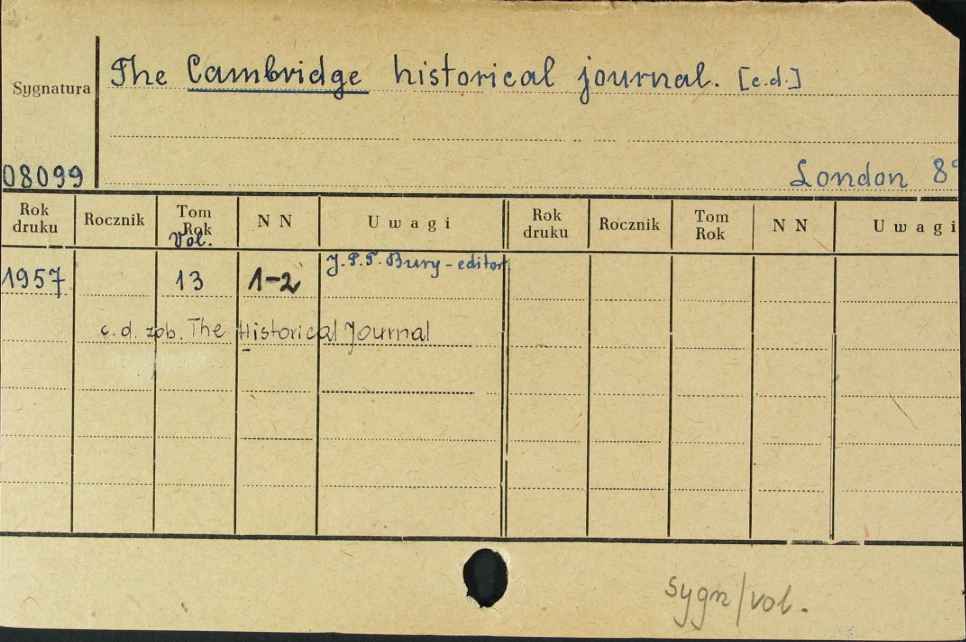 The Cambridge historical journal. [c.d.]
Sygnatura
08099
London 8°
Rok druku Rocznik Tom Rok Vol. N N Uwagi Rok druku Rocznik Tom Rok N N Uwagi
1957 13 1-2 J.P.T. Bury - editor
c.d. zob. The Historical Journal
sygn/vol.